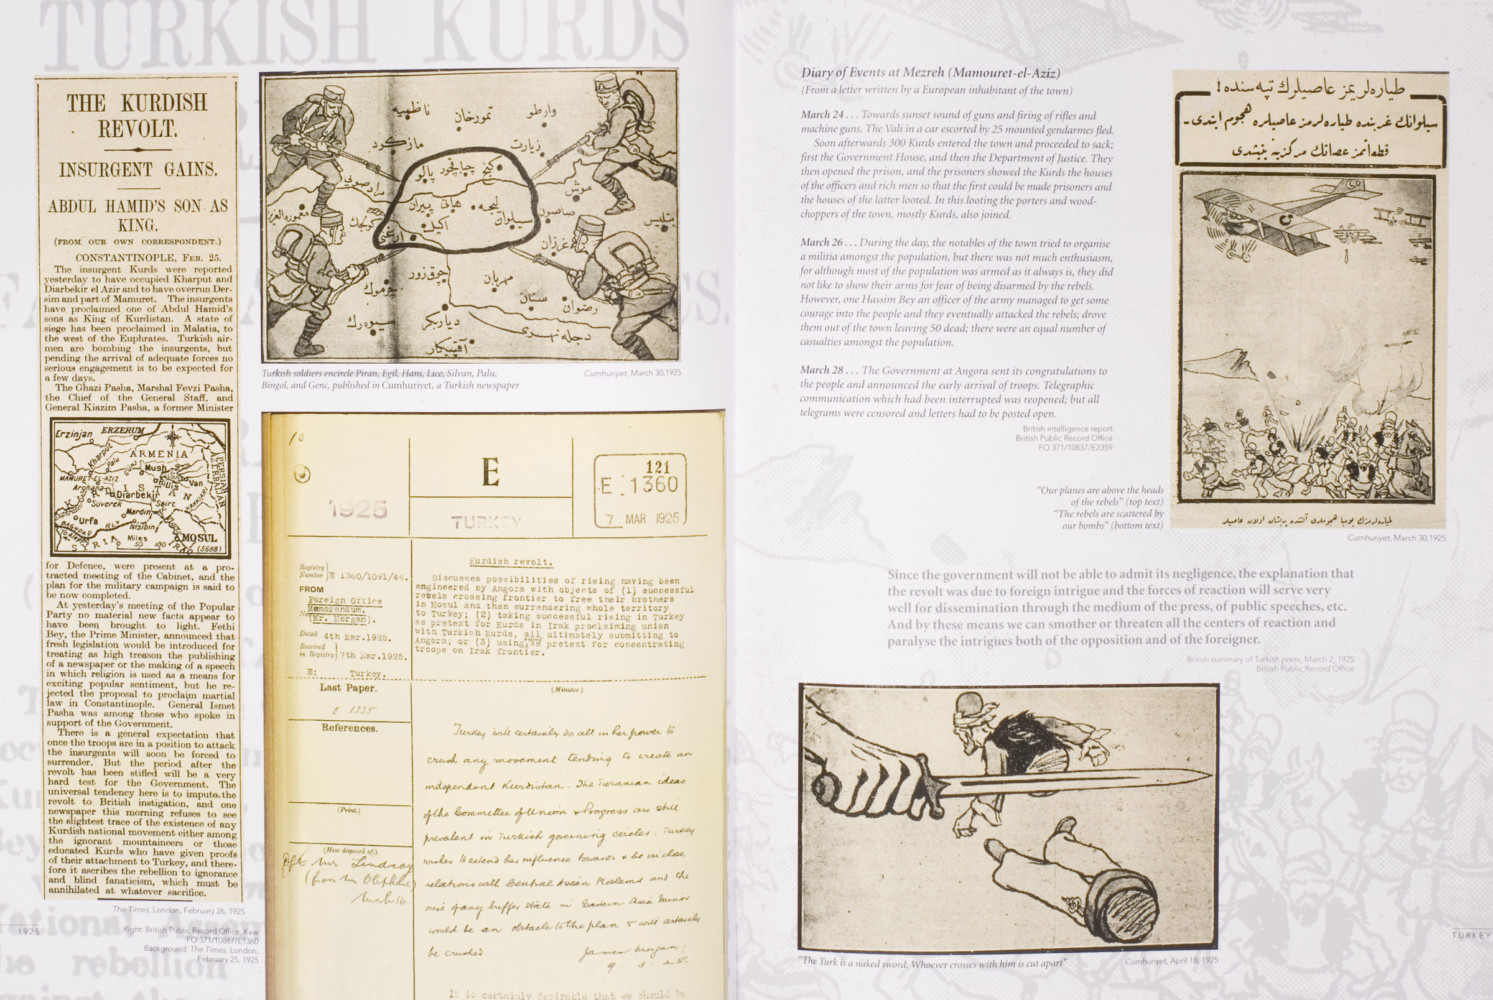 TURKISH KURDS
THE KURDISH
REVOLT.
INSURGENT GAINS.
ABDUL HAMID'S SON AS
KING.
(FROM OUR OWN CORRESPONDENT.)
CONSTANTINOPLE, FEB. 25.
The insurgent Kurds were reported
yesterday to have occupied Kharput and
Diarbekir el Azir and to have overrun Der-
sim and part of Mamuret. The insurgents
have proclaimed one of Abdul Hamid's
sons as King of Kurdistan. A state of
siege has been proclaimed in Malatia, to
the west of the Euphrates. Turkish air-
men are bombing the insurgents, but
pending the arrival of adequate forces no
serious engagement is to be expected for
a few days.
The Ghazi Pasha, Marshal Fevzi Pasha,
the Chief of the General Staff, and
General Kiazim Pasha, a former Minister
Erzinjan ERZERUM
ARMENIA
Kharput
Palu
Mush
MAMURET-EL-AZIZ
Bitlis
Van
Arghana
Diarbekir
Suverek
Sairt
Mardin
Urfa
Nisibin
BAGHDAD RLY
MOSUL
SYRIA
Miles
50 100
IRAK
(3688)
for Defence, were present at a pro-
tracted meeting of the Cabinet, and the
plan for the military campaign is said to
be now completed.
At yesterday's meeting of the Popular
Party no material new facts appear to
have been brought to light. Fethi
Bey, the Prime Minister, announced that
fresh legislation would be introduced for
treating as high treason the publishing
of a newspaper or the making of a speech
in which religion is used as a means for
exciting popular sentiment, but he re-
jected the proposal to proclaim martial
law in Constantinople. General Ismet
Pasha was among those who spoke in
support of the Government.
There is a general expectation that
once the troops are in a position to attack
the insurgents will soon be forced to
surrender. But the period after the
revolt has been stifled will be a very
hard test for the Government. The
universal tendency here is to impute the
revolt to British instigation, and one
newspaper this morning refuses to see
the slightest trace of the existence of any
Kurdish national movement either among
the ignorant mountaineers or those
educated Kurds who have given proofs
of their attachment to Turkey, and there-
fore it ascribes the rebellion to ignorance
and blind fanaticism, which must be
annihilated at whatever sacrifice.
The Times, London, February 26, 1925
Right: British Public Record Office, Kew
FO 371/10867/E1360
Background: The Times, London,
February 25, 1925
1925
وارطو
تمورخان
ناظميه
زيارت
مازكرد
كنج
چاپقچور
پالو
موش
پيران
هانی
ليجه
سيلوان
اكيل
صاصون
بتليس
غرزان
چرموك
سيوه رك
دياربكر
رضوان
دجله نهری
Turkish soldiers encircle Piran, Egil, Hani, Lice, Silvan, Palu,
Bingol, and Genc, published in Cumhuriyet, a Turkish newspaper
Cumhuriyet, March 30,1925
10
E
1925
TURKEY
121
E 1360
7 MAR 1925
Registry
Number E 1360/1091/44.
FROM
Foreign Office
Memorandum.
(Mr. Morgan).
Dated 4th Mar.1925.
Received
in Registry 7th Mar.1925.
E: Turkey.
Kurdish revolt.
Discusses possibilities of rising having been
engineered by Angora with objects of (1) successful
rebels crossing frontier to free their brothers
in Mosul and then surrendering whole territory
to Turkey; (2) taking successful rising in Turkey
as pretext for Kurds in Irak proclaiming union
with Turkish Kurds, all ultimately submitting to
Angora; or (3) using as pretext for concentrating
troops on Irak frontier.
Last Paper.
E 1225
References.
(Print.)
(How disposed of.)
Mr Lindsay
(from Mr Oliphant)
(Minutes)
Turkey will certainly do all in her power to
crush any movement tending to create an
independent Kurdistan. The Turanian ideas
of the Committee of Union & Progress are still
prevalent in Turkish governing circles. Turkey
wishes to extend her influence towards & be in close
relations with Central Asian Moslems and the
rise of any buffer state in Eastern Asia Minor
would be an obstacle to the plan & will certainly
be crushed
James Morgan
It is certainly desirable that we should be
Diary of Events at Mezreh (Mamouret-el-Aziz)
(From a letter written by a European inhabitant of the town)
March 24 . . . Towards sunset sound of guns and firing of rifles and
machine guns. The Vali in a car escorted by 25 mounted gendarmes fled.
Soon afterwards 300 Kurds entered the town and proceeded to sack;
first the Government House, and then the Department of Justice. They
then opened the prison, and the prisoners showed the Kurds the houses
of the officers and rich men so that the first could be made prisoners and
the houses of the latter looted. In this looting the porters and wood-
choppers of the town, mostly Kurds, also joined.
March 26 . . . During the day, the notables of the town tried to organise
a militia amongst the population, but there was not much enthusiasm,
for although most of the population was armed as it always is, they did
not like to show their arms for fear of being disarmed by the rebels.
However, one Hassim Bey an officer of the army managed to get some
courage into the people and they eventually attacked the rebels; drove
them out of the town leaving 50 dead; there were an equal number of
casualties amongst the population.
March 28 . . . The Government at Angora sent its congratulations to
the people and announced the early arrival of troops. Telegraphic
communication which had been interrupted was reopened; but all
telegrams were censored and letters had to be posted open.
British intelligence report
British Public Record Office
FO 371/10837/E2359
طياره لريمز عاصيلرك تپه سنده !
سيلوانك غربنده طياره لرمز عاصيلره هجوم ايتدی-
قطعاتمز عصاتك مركزينه يتيشدی
"Our planes are above the heads
of the rebels" (top text)
"The rebels are scattered by
our bombs" (bottom text)
Cumhuriyet, March 30,1925
Since the government will not be able to admit its negligence, the explanation that
the revolt was due to foreign intrigue and the forces of reaction will serve very
well for dissemination through the medium of the press, of public speeches, etc.
And by these means we can smother or threaten all the centers of reaction and
paralyse the intrigues both of the opposition and of the foreigner.
British summary of Turkish press, March 2, 1925
British Public Record Office
"The Turk is a naked sword; Whoever crosses with him is cut apart"
Cumhuriyet, April 18, 1925
TURKEY